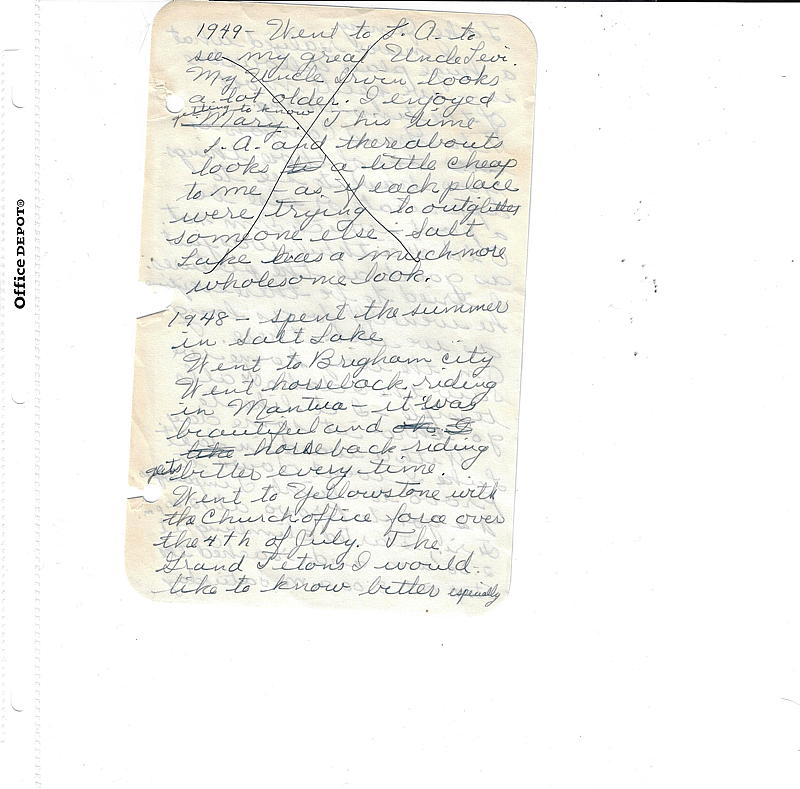 Office DEPOT®
1949 - Went to L. A. to
see my great Uncle Levi.
My Uncle Irvin looks
a lot older. I enjoyed
getting to know
Mary. This time
L. A. and thereabouts
looks to a little cheap
to me - as if each place
were trying to outglitter
someone else - Salt
Lake has a much more
wholesome look.
1948 - spent the summer
in Salt Lake
Went to Brigham City
Went horseback riding
in Mantua - it was
beautiful and oh I
like horseback riding
gets better every time.
Went to Yellowstone with
the Church office force over
the 4th of July. The
Grand Tetons I would
like to know better especially